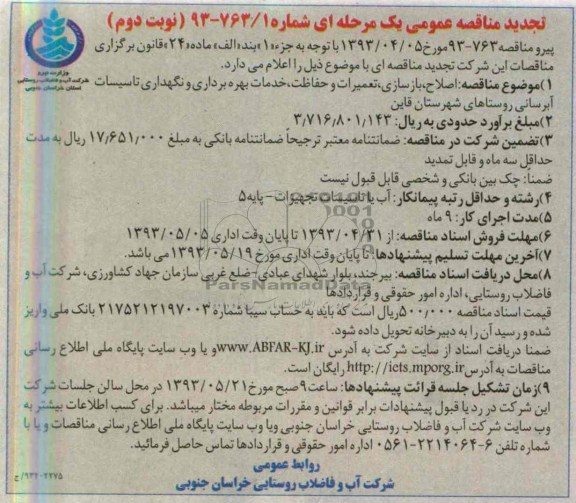 تجدید مناقصه عمومی یک مرحله ای شماره ۹۳-۷۶۳/۱ (نوبت دوم)
پیرو مناقصه ۷۶۳-۹۳ مورخ ۱۳۹۳/۰۴/۰۵ با توجه به جزء «۱» بند «الف» ماده «۲۴» قانون برگزاری
مناقصات این شرکت تجدید مناقصه ای با موضوع ذیل را اعلام می دارد.
وزارت نیرو
شرکت آب و فاضلاب روستایی
استان خراسان جنوبی
۱) موضوع مناقصه: اصلاح، بازسازی، تعمیرات و حفاظت، خدمات بهره برداری و نگهداری تاسیسات
آبرسانی روستاهای شهرستان قاین
۲) مبلغ برآورد حدودی به ریال: ۳,۷۱۶,۸۰۱,۱۴۳
۳) تضمین شرکت در مناقصه: ضمانتنامه معتبر ترجیحاً ضمانتنامه بانکی به مبلغ ۱۷,۶۵۱,۰۰۰ ریال به مدت
حداقل سه ماه و قابل تمدید
ضمناً: چک بین بانکی و شخصی قابل قبول نیست
۴) رشته و حداقل رتبه پیمانکار: آب یا تاسیسات تجهیزات - پایه ۵
۵) مدت اجرای کار: ۹ ماه
۶) مهلت فروش اسناد مناقصه: از ۱۳۹۳/۰۴/۳۱ تا پایان وقت اداری ۱۳۹۳/۰۵/۰۵
۷) آخرین مهلت تسلیم پیشنهادها: تا پایان وقت اداری مورخ ۱۳۹۳/۰۵/۱۹ می باشد.
۸) محل دریافت اسناد مناقصه: بیرجند، بلوار شهدای عبادی - ضلع غربی سازمان جهاد کشاورزی، شرکت آب و
فاضلاب روستایی، اداره امور حقوقی و قراردادها
ParsNamadData
قیمت اسناد مناقصه ۵۰۰,۰۰۰ ریال است که باید به حساب سیبا شماره ۲۱۷۵۲۱۲۱۹۷۰۰۳ بانک ملی واریز
شده و رسید آن را به دبیرخانه تحویل داده شود.
ضمنا دریافت اسناد از سایت شرکت به آدرس www.ABFAR-KJ.ir و یا وب سایت پایگاه ملی اطلاع رسانی
مناقصات به آدرس http://iets.mporg.ir رایگان است.
۹) زمان تشکیل جلسه قرائت پیشنهادها: ساعت ۹ صبح مورخ ۱۳۹۳/۰۵/۲۱ در محل سالن جلسات شرکت
این شرکت در رد یا قبول پیشنهادات برابر قوانین و مقررات مربوطه مختار میباشد. برای کسب اطلاعات بیشتر به
وب سایت شرکت آب و فاضلاب روستایی خراسان جنوبی ویا وب سایت پایگاه ملی اطلاع رسانی مناقصات و یا با
شماره تلفن ۶-۲۲۱۴۰۶۴-۰۵۶۱ اداره امور حقوقی و قراردادها تماس حاصل فرمائید.
روابط عمومی
شرکت آب و فاضلاب روستایی خراسان جنوبی
۹۳۲۰۲۲۷۵/ج